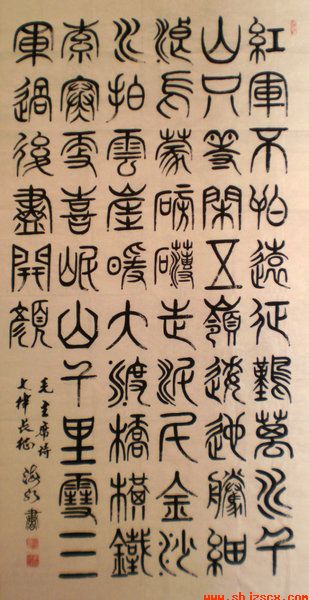 紅軍不怕遠征難萬水千
山只等閑五嶺逶迤騰細
浪烏蒙磅礴走泥丸金沙
水拍雲崖暖大渡橋橫鐵
索寒更喜岷山千里雪三
軍過後盡開顏
毛主席詩
七律長征
書
www.shjzscx.com